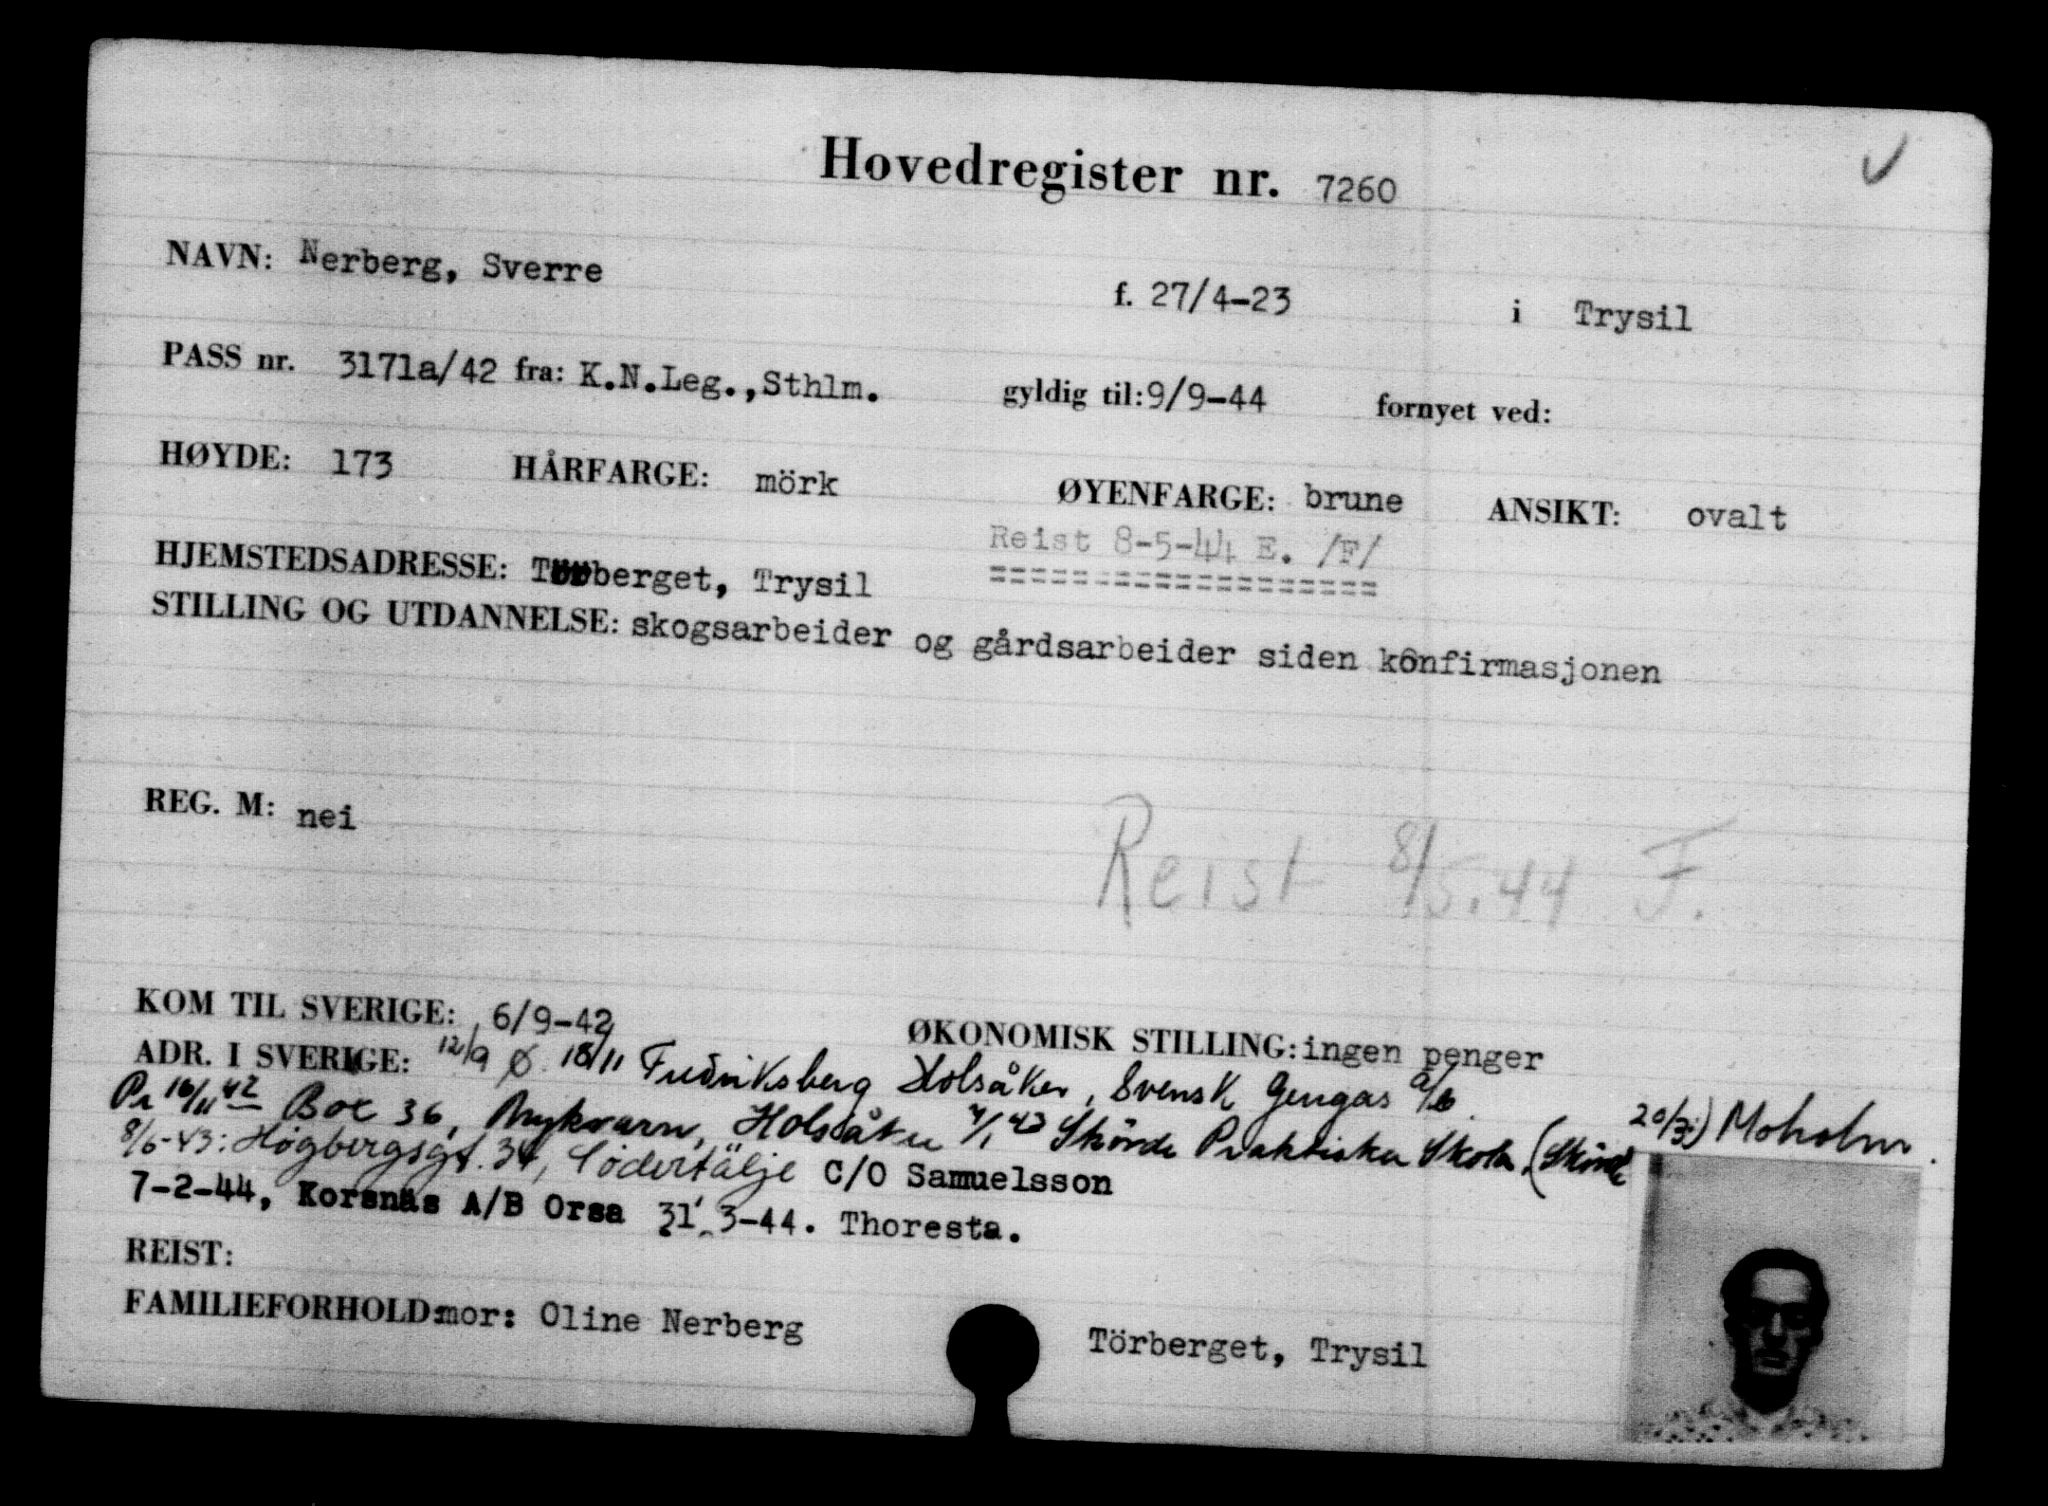 Hovedregister nr. 7260
NAVN: Nerberg, Sverre f. 27/4-23 i Trysil
PASS nr. 3171a/42 fra: K.N.Leg.,Sthlm. gyldig til: 9/9-44 fornyet ved:
HØYDE: 173 HÅRFARGE: mörk ØYENFARGE: brune ANSIKT: ovalt
Reist 8-5-44 E. /F/
HJEMSTEDSADRESSE: Törberget, Trysil
STILLING OG UTDANNELSE: skogsarbeider og gårdsarbeider siden konfirmasjonen
REG. M: nei
Reist 8/5.44 F.
KOM TIL SVERIGE: 6/9-42 ØKONOMISK STILLING: ingen penger
ADR. I SVERIGE: 12/9 Ø. 18/11 Fredriksberg Holsåker, Svensk Gengas a/b.
Pr 16/11 42 Box 36, Nykvarn, Holsåker 4/1 43 Skövde Praktiska Skola, (Skövde 20/3.) Moholm.
8/6-43: Högbergsgt. 34, Södertälje C/O Samuelsson
7-2-44, Korsnäs A/B Orsa 31.3-44. Thoresta.
REIST:
FAMILIEFORHOLD: mor: Oline Nerberg Törberget, Trysil